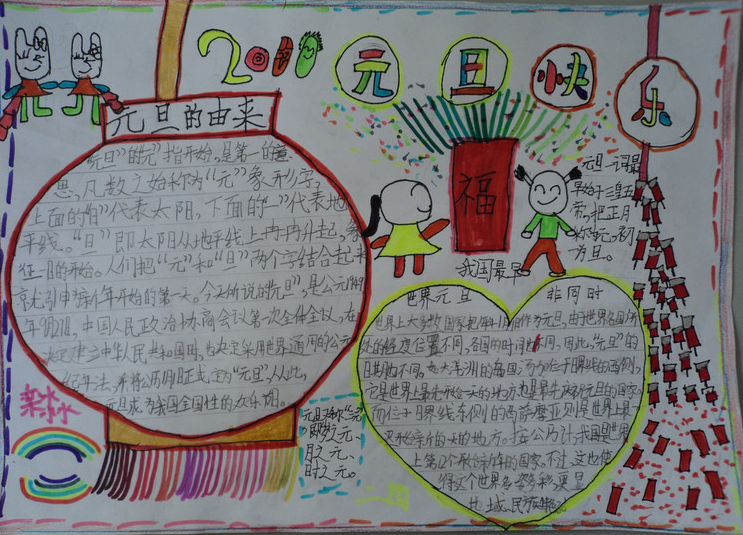 2011 元旦快乐
元旦的由来
“元旦”的“元”指开始,是第一的意
思,凡数之始称为“元”象形字,
上面的“日”代表太阳,下面的“一”代表地
平线。“旦”即太阳从地平线上冉冉升起,象
征一日的开始。人们把“元”和“旦”两个字结合起来
就引申为新年开始的第一天。今天所说的“元旦”,是公元1949
年9月27日,中国人民政治协商会议第一次全体会议,在
决定建立中华人民共和国同,也决定采用世界通用的公元
纪年法,并将公历1月1日正式定为“元旦”,从此,
元旦成为我国全国性的欢乐节。
福
元旦一词最
早始于三皇五
帝,把正月
称为元,初
一为旦。
我国最早
元旦又称“三元”
即岁之元、
月之元、
时之元。
世界元旦 非同时
世界上大多数国家把每年1月1日作为元旦,由于世界各国所
处的经度位置不同,各国的时间也不同,因此,“元旦”的
日期也不同,如大洋洲的岛国汤加位于日界线的西侧,
它是世界上最先开始一天的地方也是最先庆祝元旦的国家。
而位于日界线东侧的西萨摩亚则是世界上最
迟开始新的一天的地方。按公历计,我国是世界
上第12个开始新年的国家。不过,这也使
得这个世界多姿多彩,更显
地域、民族